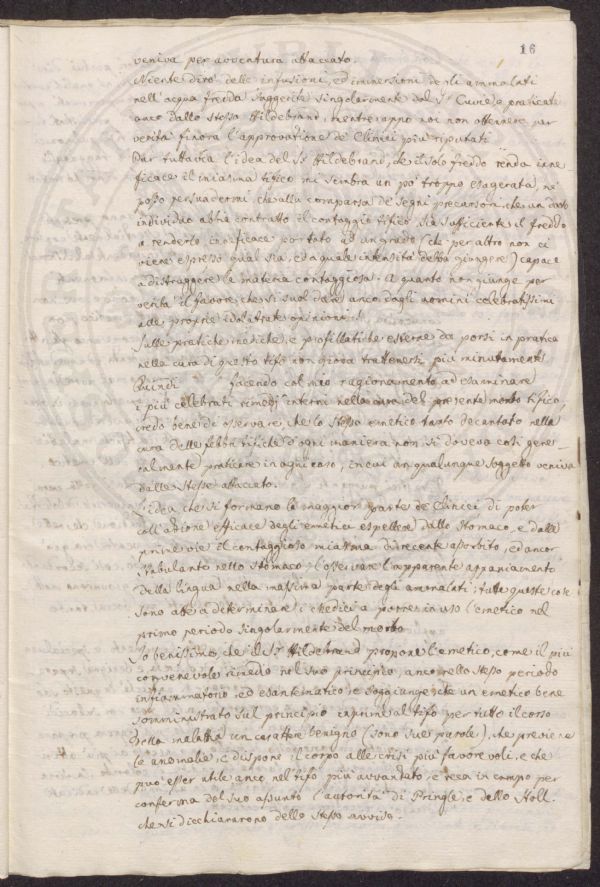 16
veniva per avventura attaciato.
Niente dirò delle infusioni, ed immersioni degli ammalati
nell'acqua fredda suggerite singolarmente dal Sr. Currie, e praticate
anco dallo stesso Hildebrand, mentre sappo noi non ottenere per
verità finora l'approvazione de' Clinici più riputati.
Pur tuttavia l'idea del Sr. Hildebrand, che il solo freddo renda inef-
ficace il miasma tifico mi sembra un pò troppo esagerata, nè
posso persuadermi, che alla comparsa de' segni precursori che un dato
individuo abbia contratto il contaggio tifico, sia sufficiente il freddo
a renderlo inefficace portato ad un grado (che per altro non ci
viene espresso qual sia, ed a quale intensità debba giungere) capace
a distruggere la materia contaggiosa. A quanto non giunge per
verità il favore, che si suol dare anco dagli uomini celebratissimi
alle proprie idolatrate opinioni!
Sulle pratiche mediche, e profilattiche esterne da porsi in pratica
nella cura di questo tifo non giova trattenersi più minutamente.
Quindi facendo col mio ragionamento ad esaminare
i più celebrati rimedj interni nella cura del presente morbo tifico,
credo bene di osservare, che lo stesso emetico tanto decantato nella
cura delle febbri tifiche d'ogni maniera non si doveva così gener-
almente praticare in ogni caso, in cui un qualunque soggetto veniva
dalle stesse attaciato.
L'idea che si formano la maggior parte de' Clinici di poter
coll'azione efficace degli emetici espellere dallo stomaco, e dalle
prime vie il contaggioso miasma di recente assorbito, ed ancor
stabulante nello stomaco; l'osservare l'apparente appaniamento
della lingua nella massima parte degli ammalati; tutte queste cose
sono atte a determinare i Medici a porre in uso l'emetico nel
primo periodo singolarmente del morbo.
So benissimo, che il Sr. Hildebrand propone l'emetico, come il più
convenevole rimedio nel suo principio, anco nello stesso periodo
infiammatorio, ed esantematico; e soggiunge che un emetico bene
somministrato sul principio imprime al tifo per tutto il corso
della malattia un carattere benigno (sono sue parole), che previene
le anomalie, e dispone il corpo alle crisi più favorevoli, e che
può esser utile anco nel tifo più avvantato, e reca in campo per
conferma del suo assunto l'autorità di Pringle, e dello Stoll.
che si dicchiararono dello stesso avviso.